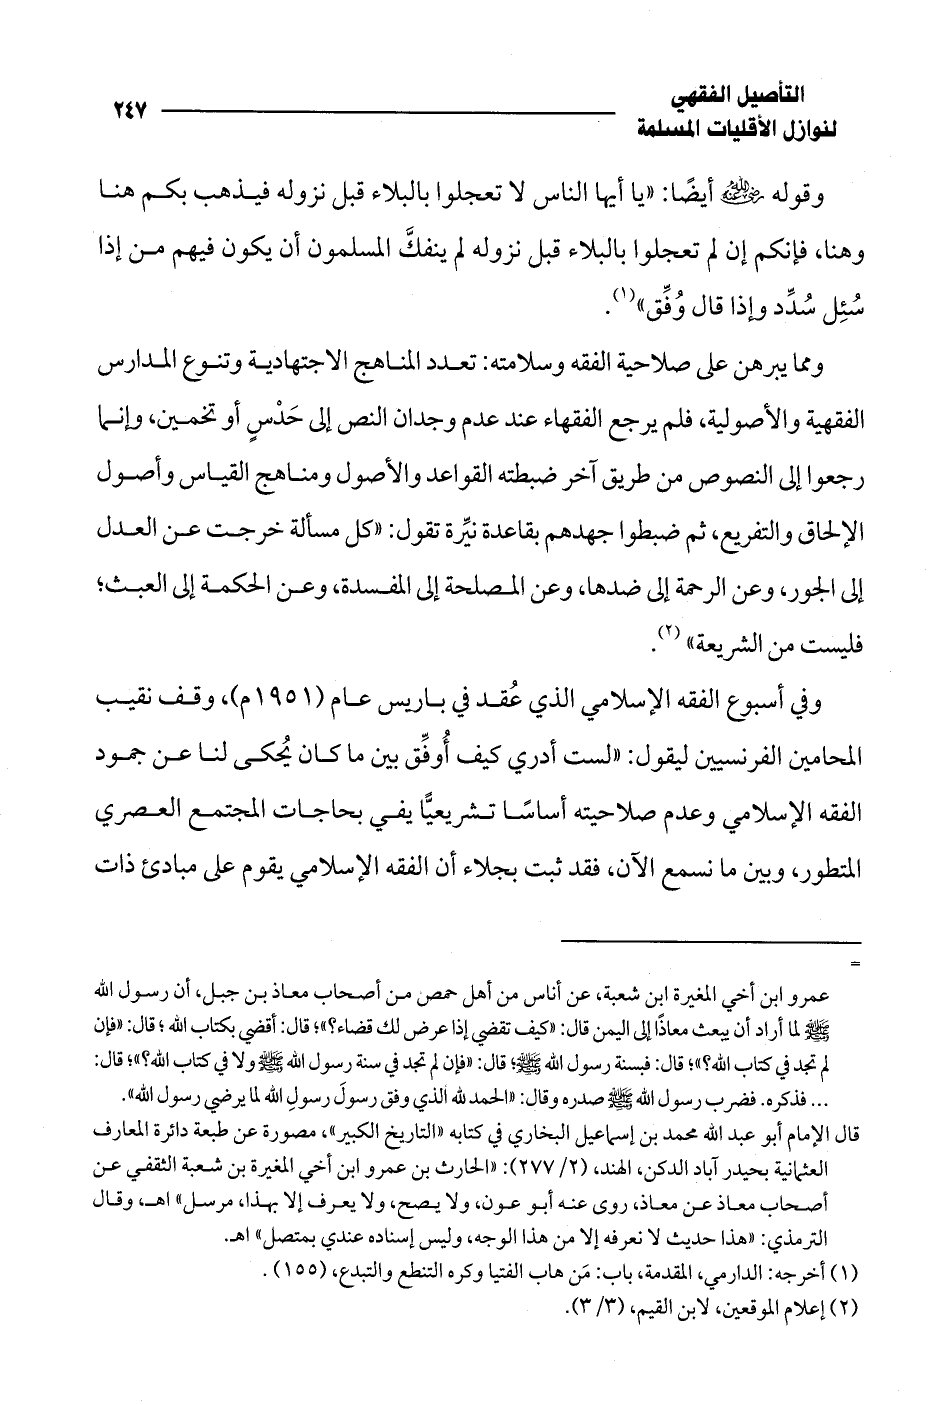 التأصيل الفقهي
لنوازل الأقليات المسلمة
٢٤٧
وقوله رضي الله عنه أيضًا: «يا أيها الناس لا تعجلوا بالبلاء قبل نزوله فيذهب بكم هنا
وهنا، فإنكم إن لم تعجلوا بالبلاء قبل نزوله لم ينفكَّ المسلمون أن يكون فيهم من إذا
سُئِل سُدِّد وإذا قال وُفِّق»(١).
ومما يبرهن على صلاحية الفقه وسلامته: تعدد المناهج الاجتهادية وتنوع المدارس
الفقهية والأصولية، فلم يرجع الفقهاء عند عدم وجدان النص إلى حَدْسٍ أو تخمين، وإنما
رجعوا إلى النصوص من طريق آخر ضبطته القواعد والأصول ومناهج القياس وأصول
الإلحاق والتفريع، ثم ضبطوا جهدهم بقاعدة نيِّرة تقول: «كل مسألة خرجت عن العدل
إلى الجور، وعن الرحمة إلى ضدها، وعن المصلحة إلى المفسدة، وعن الحكمة إلى العبث؛
فليست من الشريعة» (٢).
وفي أسبوع الفقه الإسلامي الذي عُقد في باريس عام (١٩٥١م)، وقف نقيب
المحامين الفرنسيين ليقول: «لست أدري كيف أُوفِّق بين ما كان يُحكى لنا عن جمود
الفقه الإسلامي وعدم صلاحيته أساسًا تشريعيًّا يفي بحاجات المجتمع العصري
المتطور، وبين ما نسمع الآن، فقد ثبت بجلاء أن الفقه الإسلامي يقوم على مبادئ ذات
=
عمرو ابن أخي المغيرة ابن شعبة، عن أناس من أهل حمص من أصحاب معاذ بن جبل، أن رسول الله
ﷺ لما أراد أن يبعث معاذًا إلى اليمن قال: «كيف تقضي إذا عرض لك قضاء؟»؛ قال: أقضي بكتاب الله ؛ قال: «فإن
لم تجد في كتاب الله؟»؛ قال: فبسنة رسول الله ﷺ؛ قال: «فإن لم تجد في سنة رسول الله ﷺ ولا في كتاب الله؟»؛ قال:
... فذكره. فضرب رسول الله ﷺ صدره وقال: «الحمد لله الذي وفق رسولَ رسولِ الله لما يرضي رسول الله».
قال الإمام أبو عبد الله محمد بن إسماعيل البخاري في كتابه «التاريخ الكبير»، مصورة عن طبعة دائرة المعارف
العثمانية بحيدر آباد الدكن، الهند، (٢/ ٢٧٧): «الحارث بن عمرو ابن أخي المغيرة بن شعبة الثقفي عن
أصحاب معاذ عن معاذ، روى عنه أبو عون، ولا يصح، ولا يعرف إلا بهذا، مرسل» اهـ، وقال
الترمذي: «هذا حديث لا نعرفه إلا من هذا الوجه، وليس إسناده عندي بمتصل» اهـ.
(١) أخرجه: الدارمي، المقدمة، باب: مَن هاب الفتيا وكره التنطع والتبدع، (١٥٥) .
(٢) إعلام الموقعين، لابن القيم، (٣/ ٣).